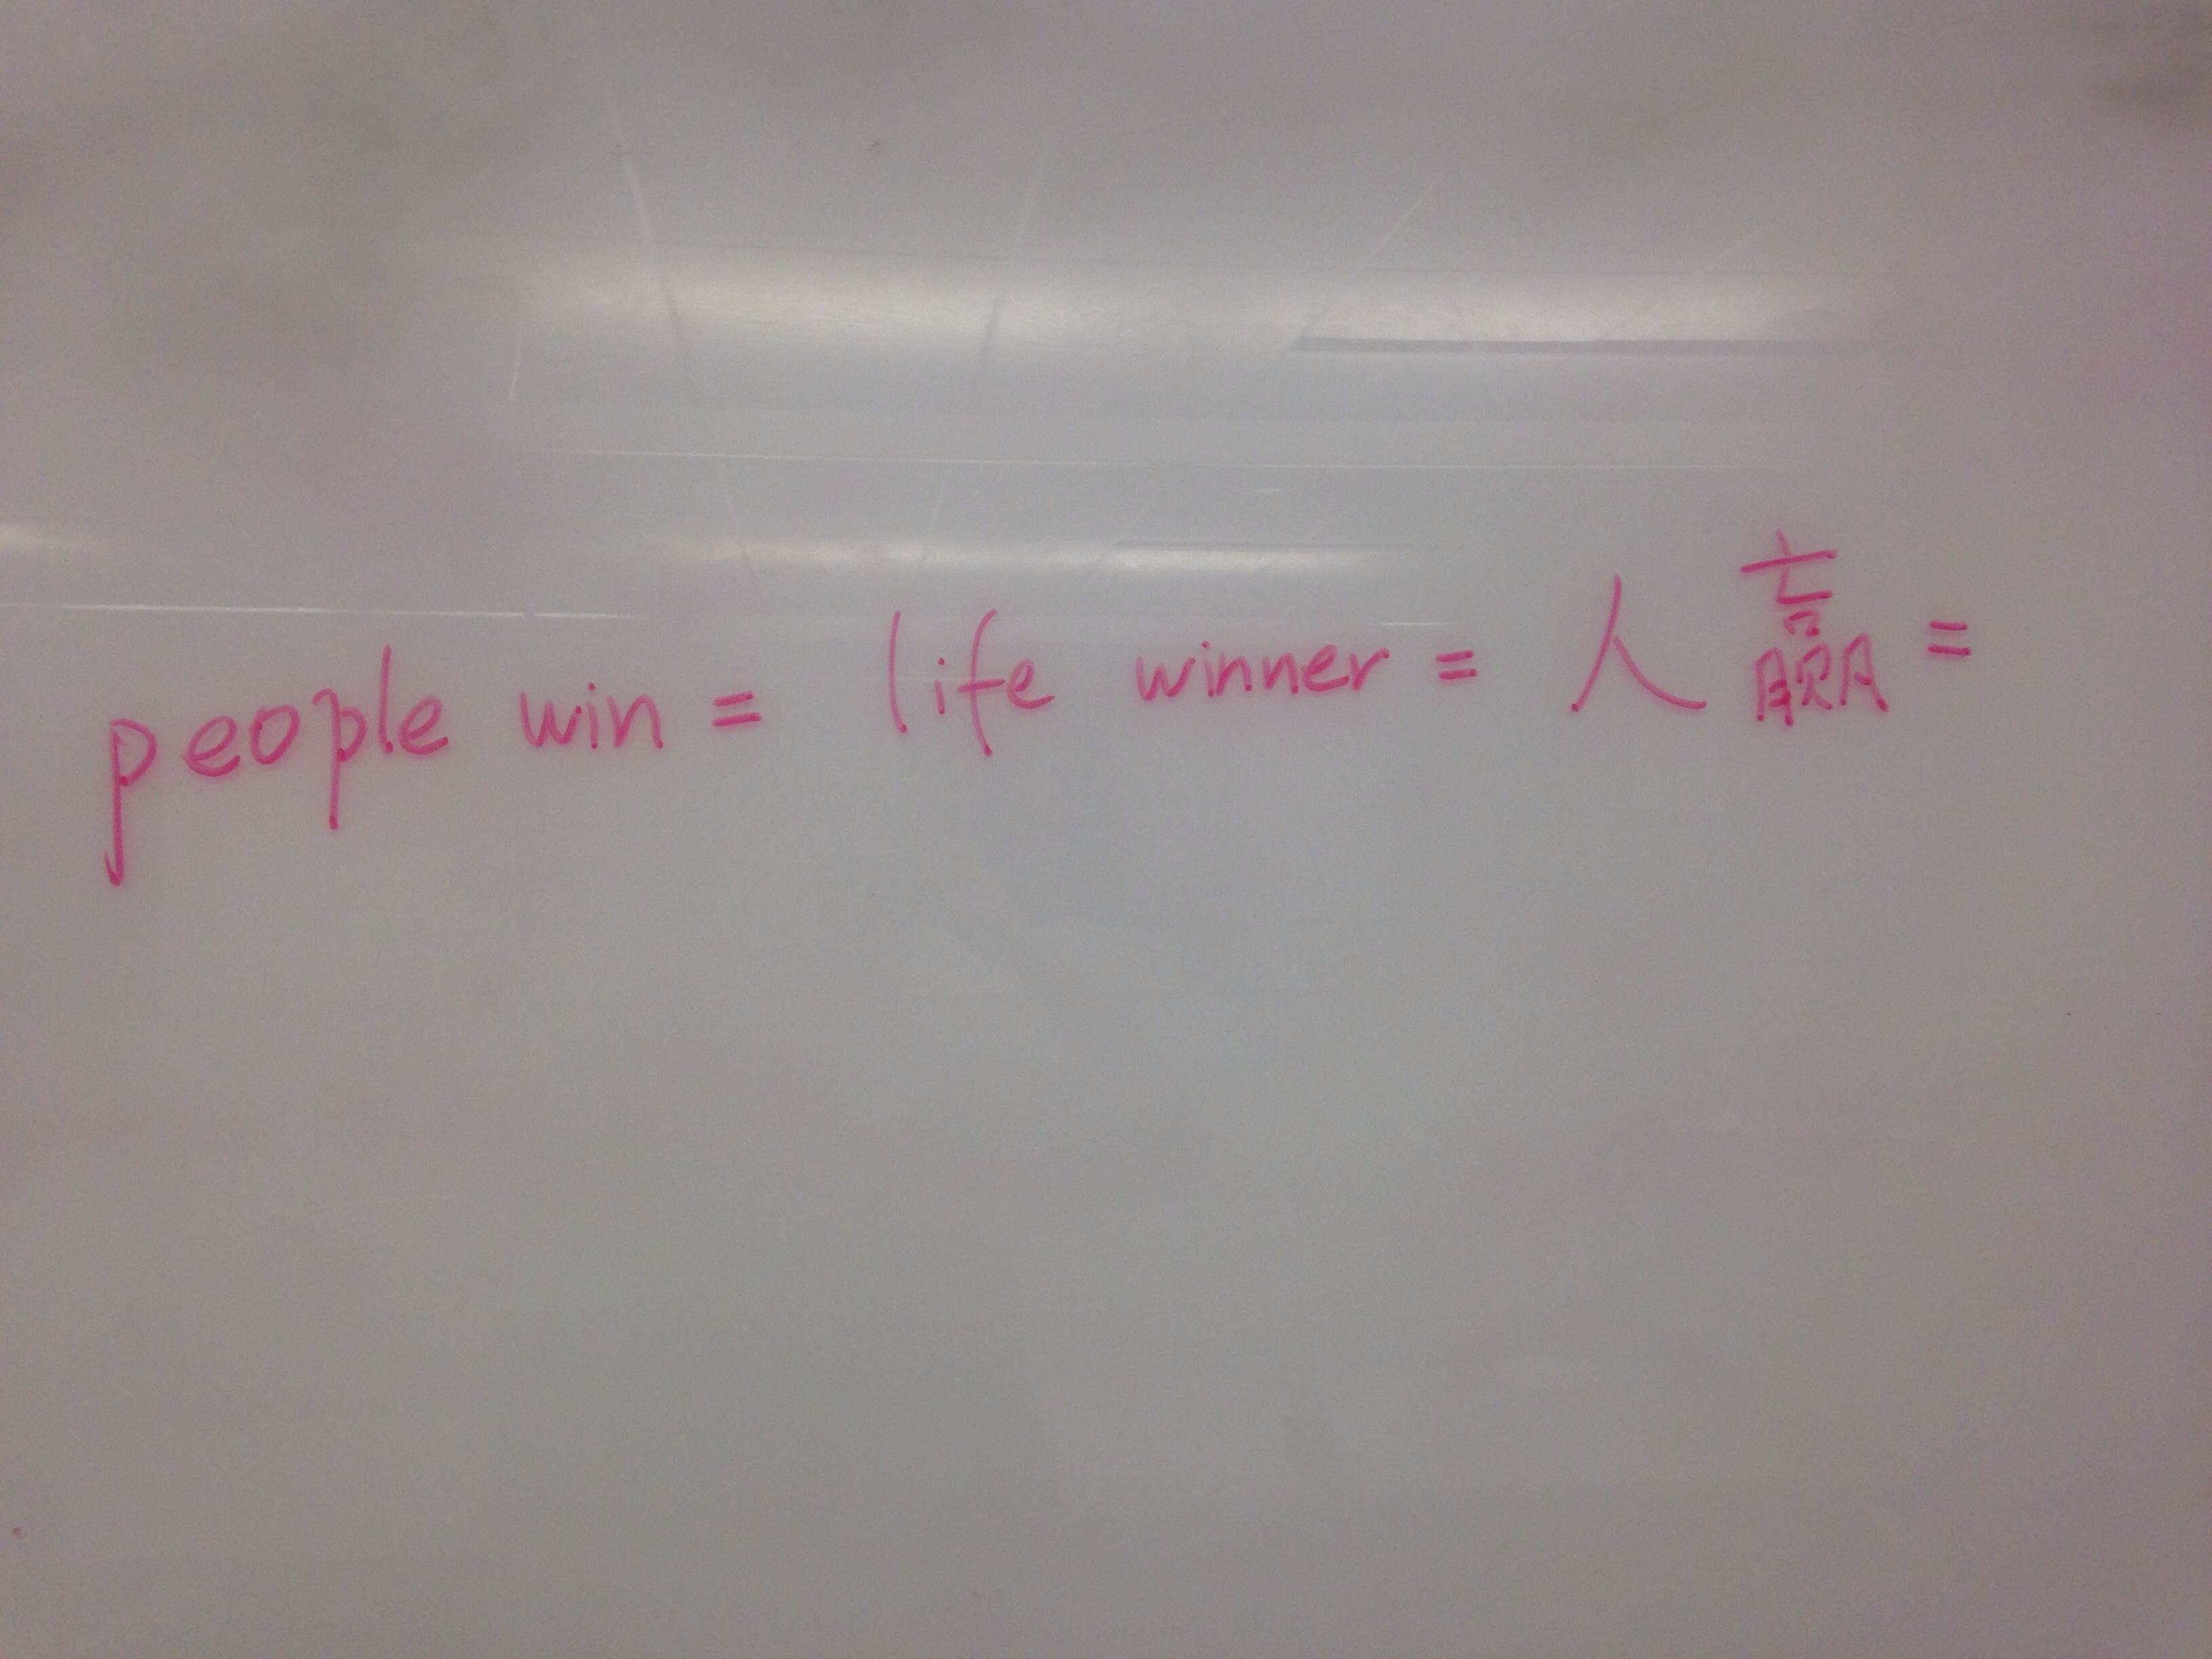 people win = life winner = 人赢 =